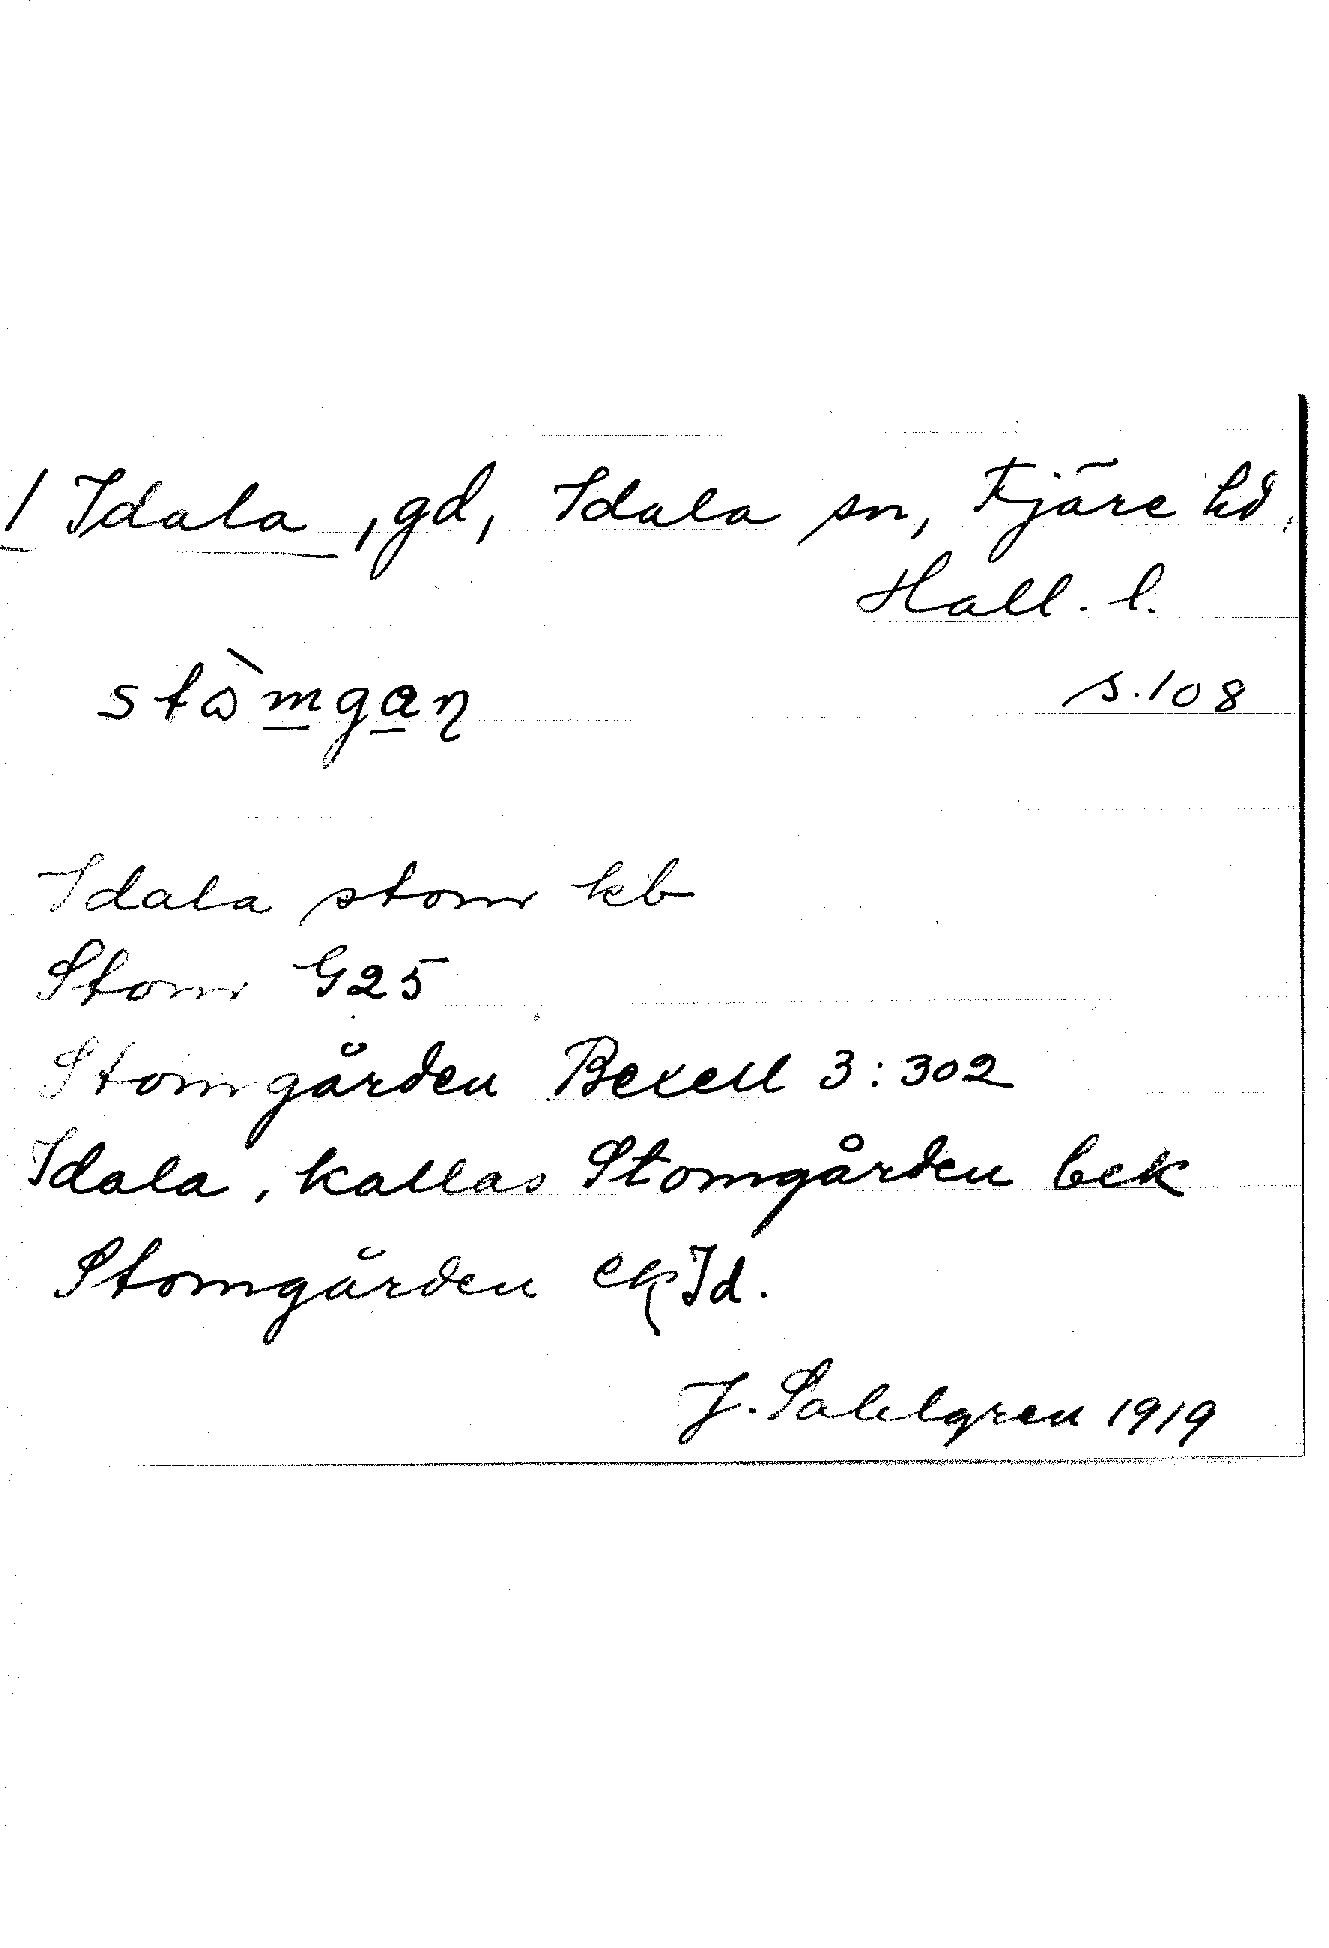 1 Idala, gd, Idala sn, Fjäre hd,
Hall. l.
stòmgaɳ s. 108
Idala stom kb
Stom G25
Stomgården Bexell 3:302
Idala, kallas Stomgården bek
Stomgården ek Id.
J. Sahlgren 1919